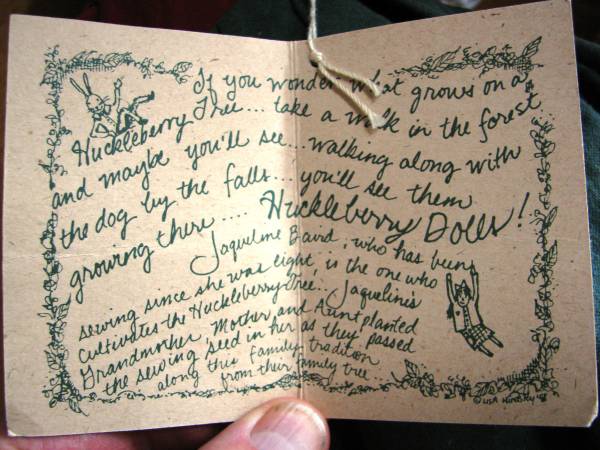 If you wonder what grows on a
Huckleberry Tree... take a walk in the forest
and maybe you'll see... walking along with
the dog by the falls... you'll see them
growing there.... Huckleberry Dolls!
Jaqueline Baird, who has been
sewing since she was eight, is the one who
cultivates the Huckleberry Tree... Jaqueline's
Grandmother, Mother, and Aunt planted
the sewing seed in her as they passed
along this family tradition
from their family tree...
© LISA